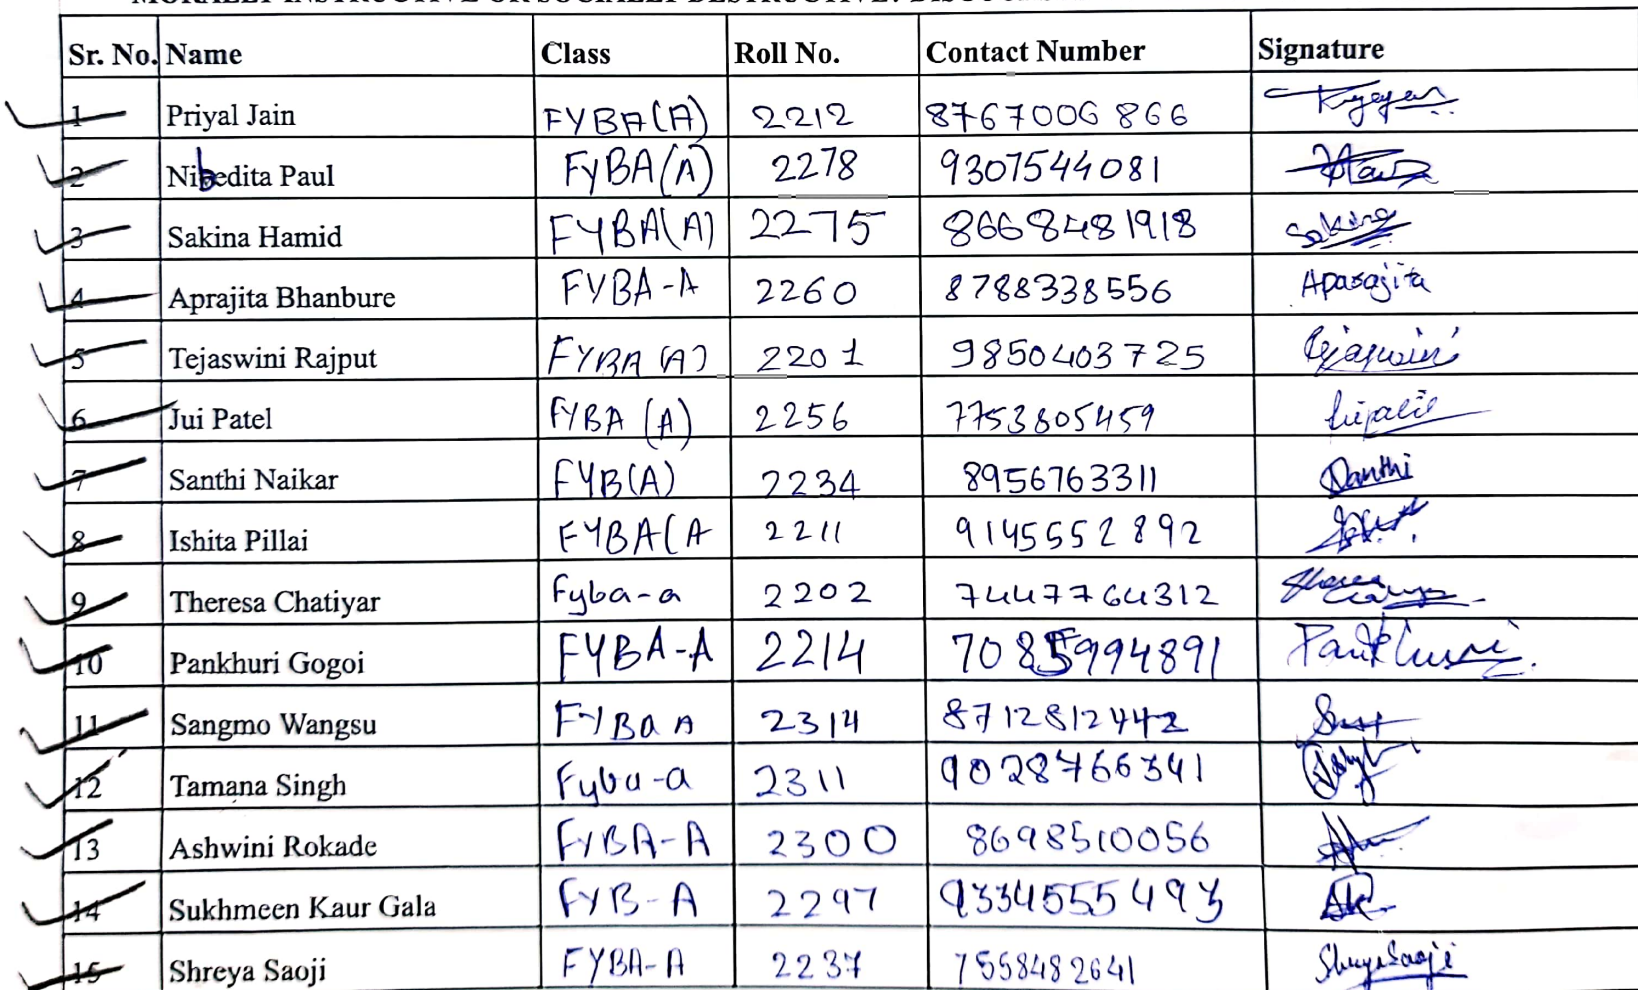 Sr. No. Name Class Roll No. Contact Number Signature
1 Priyal Jain FYBA(A) 2212 8767006866
2 Nibedita Paul FYBA(A) 2278 9307544081
3 Sakina Hamid FYBA(A) 2275 8668481918 Sakina
4 Aprajita Bhanbure FYBA-A 2260 8788338556 Aparajita
5 Tejaswini Rajput FYBA (A) 2201 9850403725 Tejaswini
6 Jui Patel FYBA (A) 2256 7753805459
7 Santhi Naikar FYB(A) 2234 8956763311 Santhi
8 Ishita Pillai FYBA(A 2211 9145552892
9 Theresa Chatiyar Fyba-a 2202 7447764312
10 Pankhuri Gogoi FYBA-A 2214 7085994891 Pankhuri
11 Sangmo Wangsu FYBa A 2314 8712812442
12 Tamana Singh Fyba-a 2311 9028766341
13 Ashwini Rokade FYBA-A 2300 8698510056
14 Sukhmeen Kaur Gala FYB-A 2297 9334555493
15 Shreya Saoji FYBA-A 2237 7558482641 Shreya Saoji